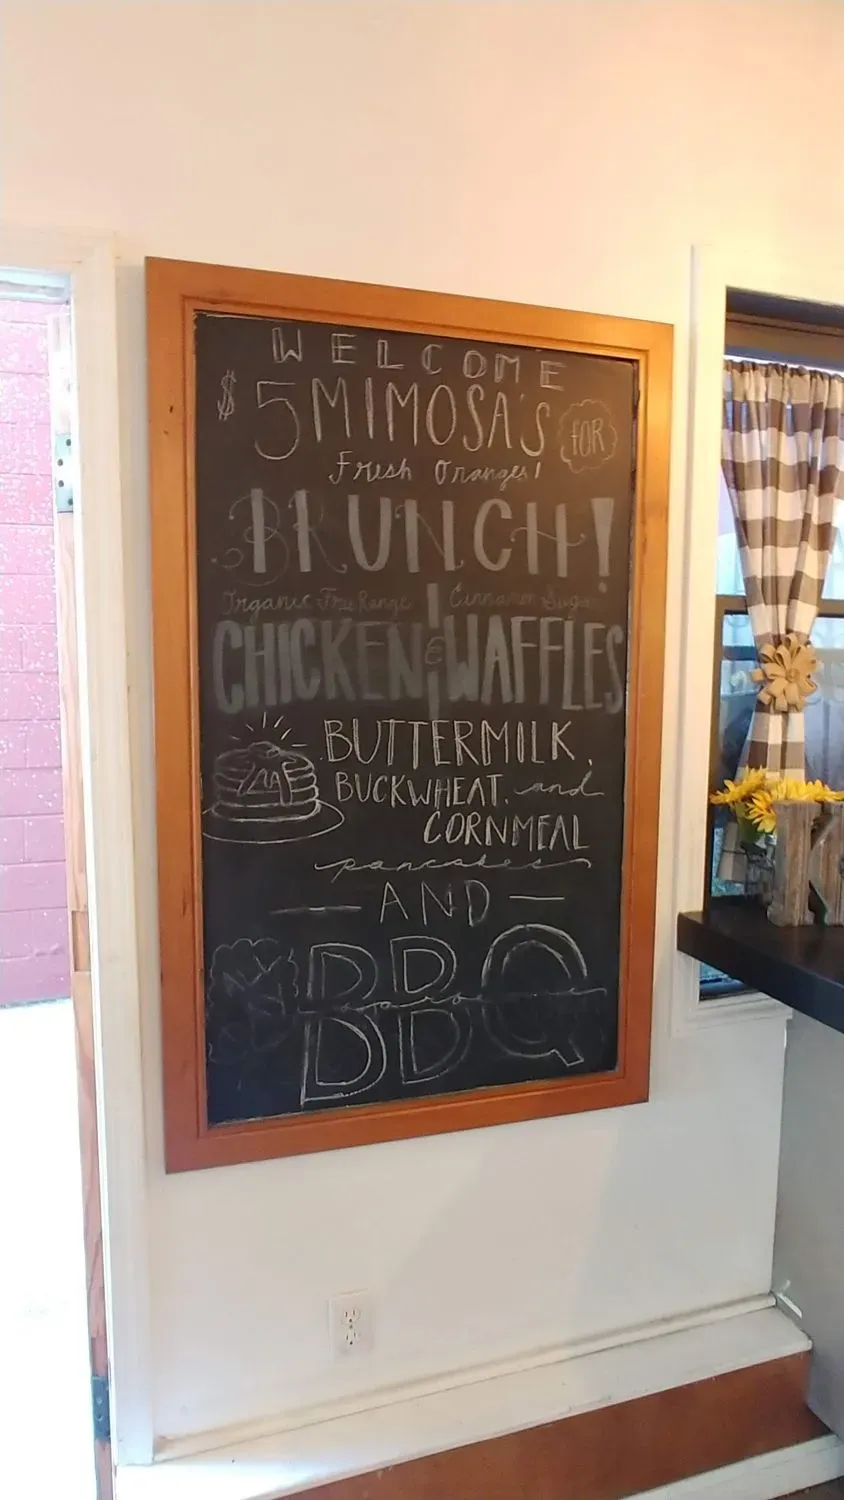 WELCOME
$5 MIMOSA'S FOR
Fresh Oranges!
BRUNCH!
Organic Free Range Cinnamon Sugar
CHICKEN & WAFFLES
BUTTERMILK,
BUCKWHEAT, and
CORNMEAL
pancakes
— AND —
DDQ
DDQ
K